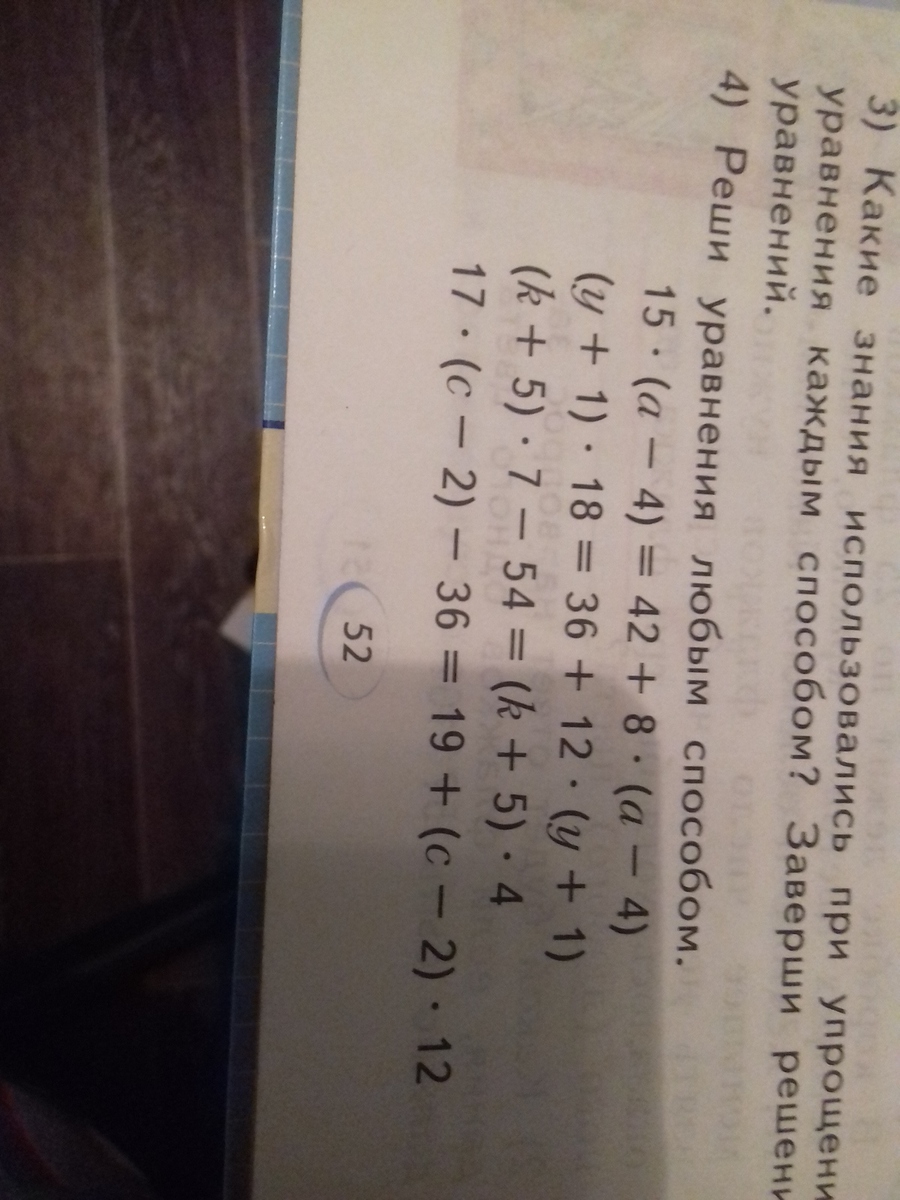 3) Какие знания использовались при упрощени
уравнения каждым способом? Заверши решени
уравнений.
4) Реши уравнения любым способом.
15 · (a − 4) = 42 + 8 · (a − 4)
(y + 1) · 18 = 36 + 12 · (y + 1)
(k + 5) · 7 − 54 = (k + 5) · 4
17 · (c − 2) − 36 = 19 + (c − 2) · 12
52